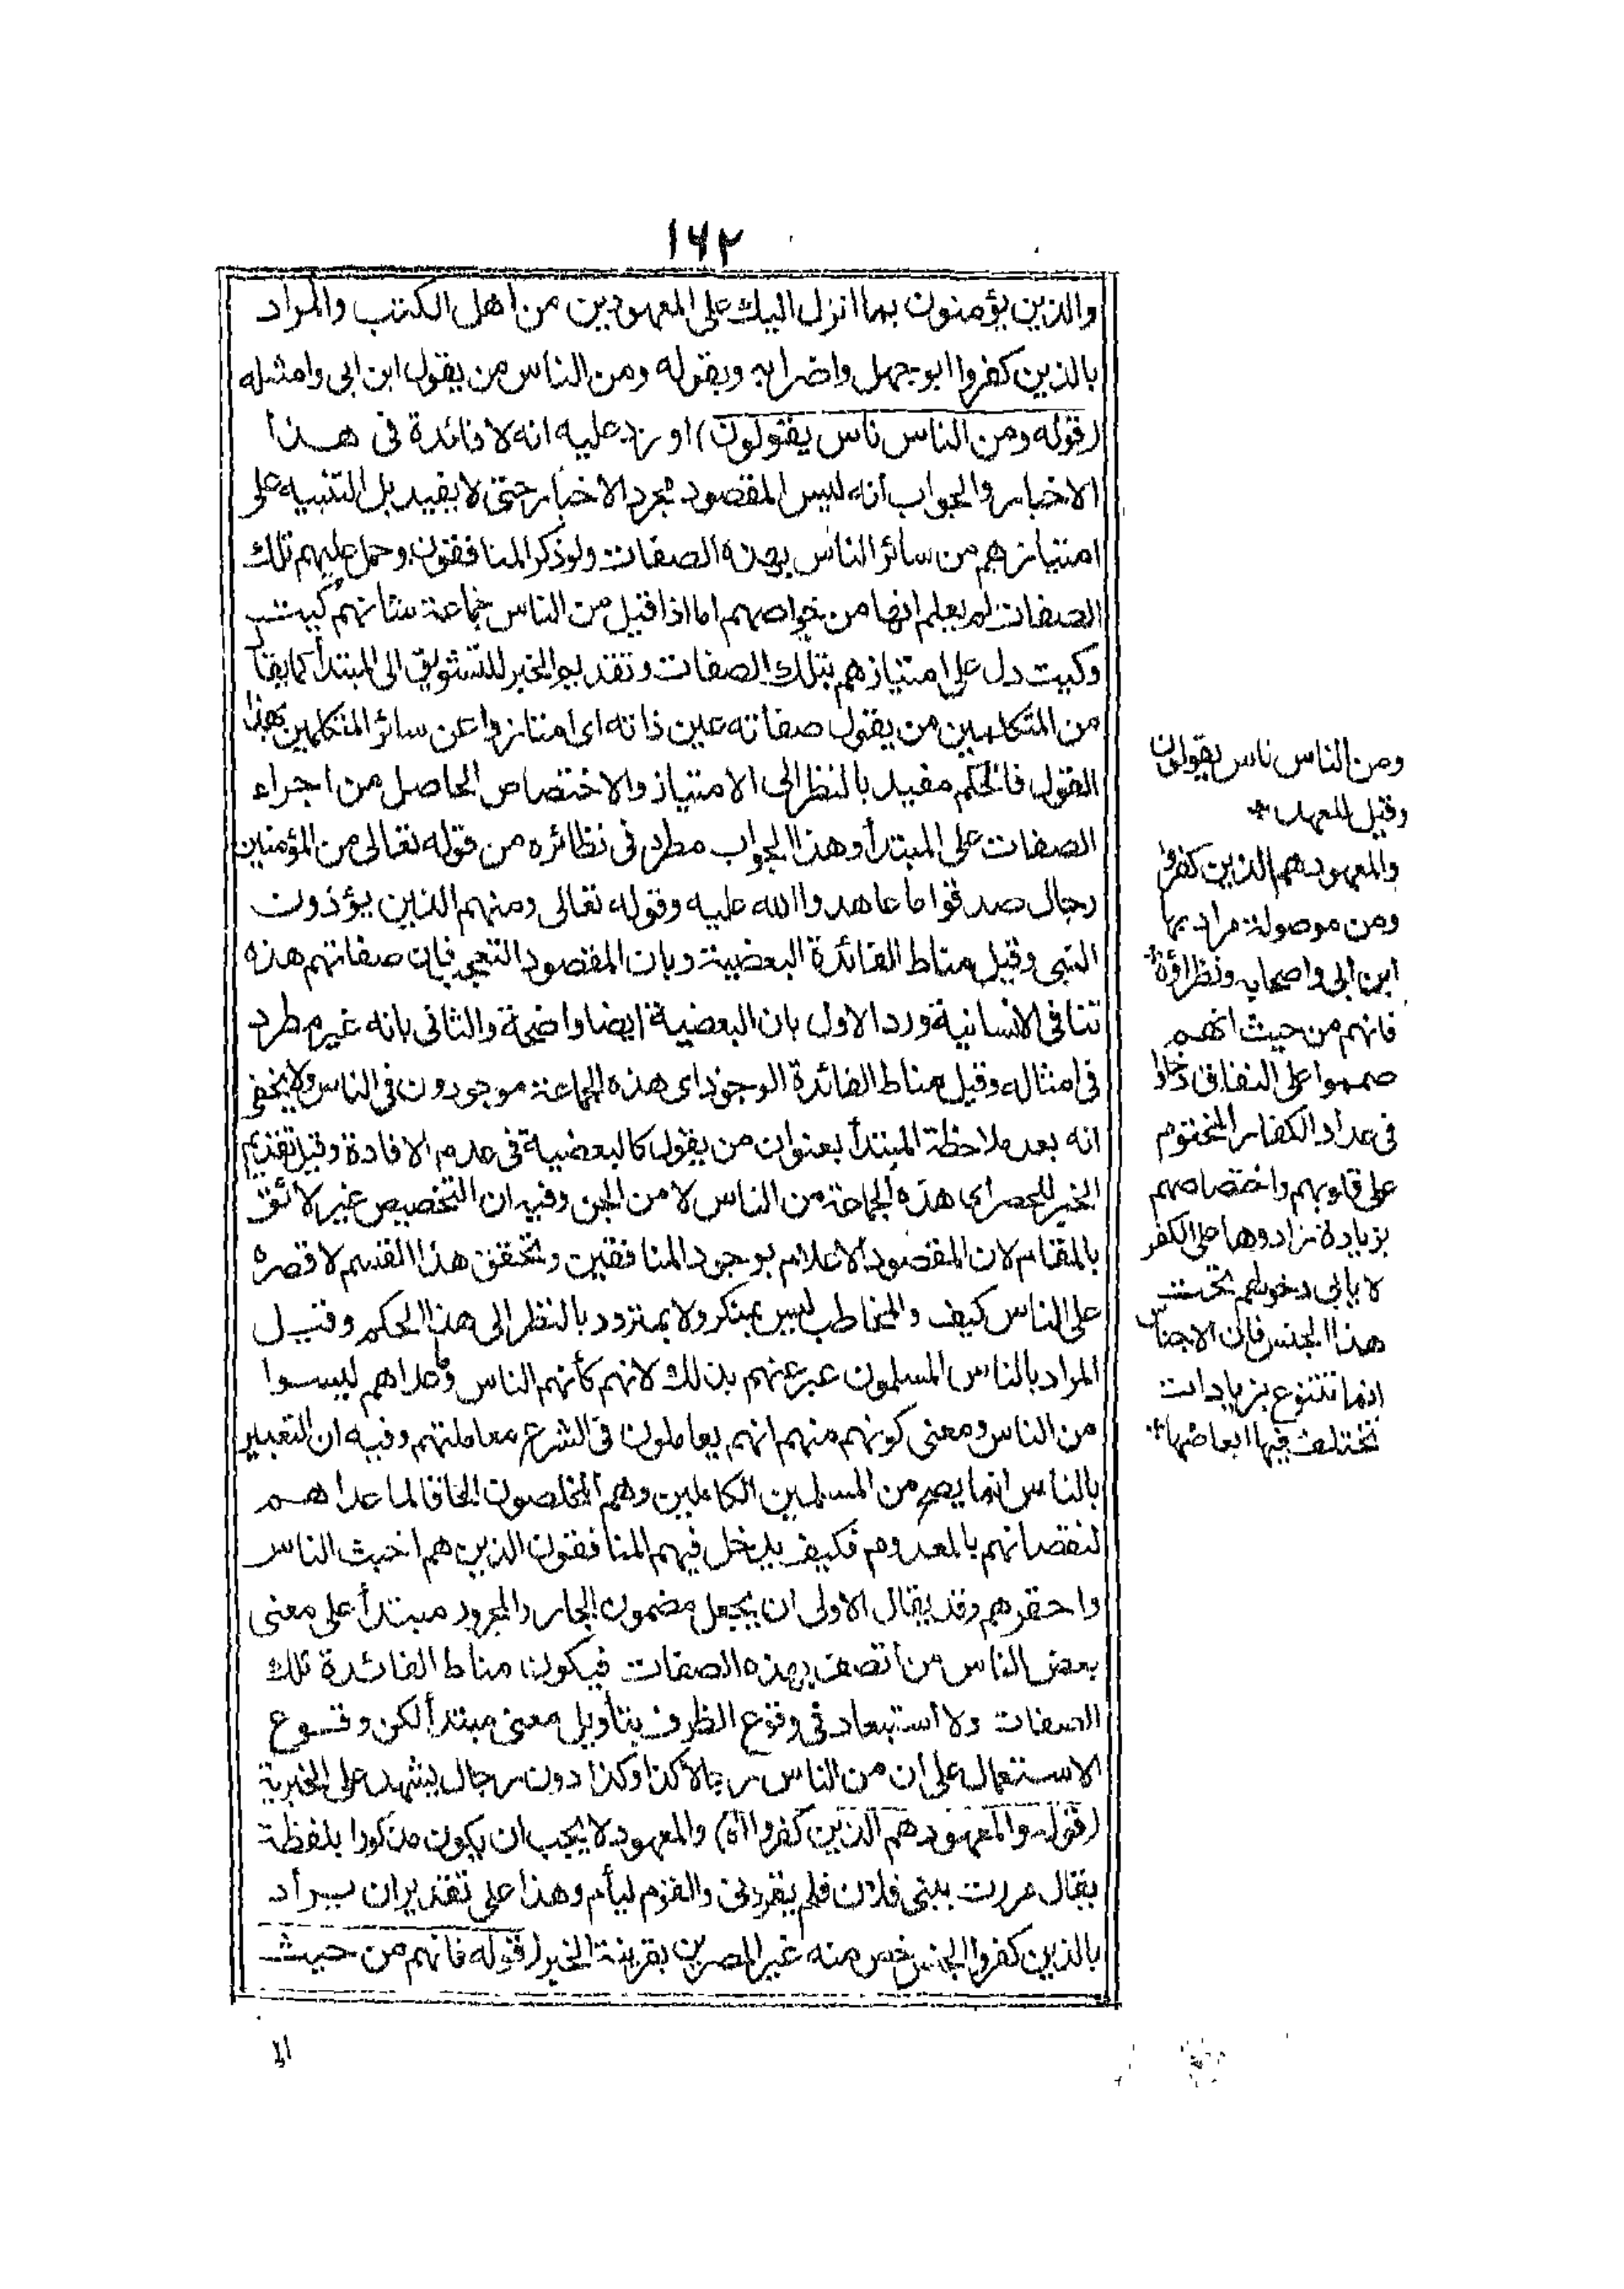 ١٦٢
والذين يؤمنون بما انزل اليك على المعهودين من اهل الكتب والمراد
بالذين كفروا ابو جهل واضرابه وبقوله ومن الناس من يقول ابن ابى وامثاله
(قوله ومن الناس ناس يقولون) اورد عليه انه لا فائدة فى هذا
الاخبار والجواب انه ليس المقصود مجرد الاخبار حتى لا يفيد بل التنبيه على
امتيازهم من سائر الناس بهذه الصفات ولو ذكر المنافقون وحمل عليهم تلك
الصفات لم يعلم انها من خواصهم اما اذا قيل من الناس جماعة شانهم كيت
وكيت دل على امتيازهم بتلك الصفات وتقديم الخبر للتشويق الى المبتدأ كما يقال
من المتكلمين من يقول صفاته عين ذاته اى امتازوا عن سائر المتكلمين بهذا
القول فالحكم مفيد بالنظر الى الامتياز والاختصاص الحاصل من اجراء
الصفات على المبتدأ وهذا الجواب مطرد فى نظائره من قوله تعالى من المؤمنين
رجال صدقوا ما عاهدوا الله عليه وقوله تعالى ومنهم الذين يؤذون
النبى وقيل مناط الفائدة البعضية وبان المقصود التعجب فان صفاتهم هذه
تنافى الانسانية ورد الاول بان البعضية ايضا واضحة والثانى بانه غير مطرد
فى امثاله وقيل مناط الفائدة الوجود اى هذه الجماعة موجودون فى الناس ولا يخفى
انه بعد ملاحظة المبتدأ بعنوان من يقول كالبعضية فى عدم الافادة وقيل تقديم
الخبر للحصر اى هذه الجماعة من الناس لا من الجن وفيه ان التخصيص غير لائق
بالمقام لان المقصود الاعلام بوجود المنافقين وتحقق هذا القسم لا قصره
على الناس كيف والمخاطب ليس بمنكر ولا بمتردد بالنظر الى هذا الحكم وقيل
المراد بالناس المسلمون عبر عنهم بذلك لانهم كأنهم الناس وما عداهم ليسوا
من الناس ومعنى كونهم منهم انهم يعاملون فى الشرع معاملتهم وفيه ان التعبير
بالناس انما يصح من المسلمين الكاملين وهم المخلصون الحاقا لما عداهم
لنقصانهم بالمعدوم فكيف يدخل فيهم المنافقون الذين هم اخبث الناس
واحقرهم وقد يقال الاولى ان يجعل مضمون الجار والمجرور مبتدأ على معنى
بعض الناس من اتصف بهذه الصفات فيكون مناط الفائدة تلك
الصفات ولا استبعاد فى وقوع الظرف بتأويل معنى مبتدأ لكن وقوع
الاستعمال على ان من الناس رجالا كذا وكذا دون رجال يشهد على الخبرية
(قوله والمعهود هم الذين كفروا اه) والمعهود لا يجب ان يكون مذكورا بلفظه
يقال مررت ببنى فلان فلم يقرونى والقوم ليأم وهذا على تقدير ان يراد
بالذين كفروا الجنس خص منه غير المصرين بقرينة الخبر (قوله فانهم من حيث
ومن الناس ناس يقولون
وقيل للعهد *
والمعهود هم الذين كفروا
ومن موصولة مراد بها
ابن ابى واصحابه ونظراؤه
فانهم من حيث انهم
صمموا على النفاق دخلوا
فى عداد الكفار المختوم
على قلوبهم واختصاصهم
بزيادة زادوها على الكفر
لا يابى دخولهم تحت
هذا الجنس فان الاجناس
انما تتنوع بزيادات
تختلف فيها ابعاضها *